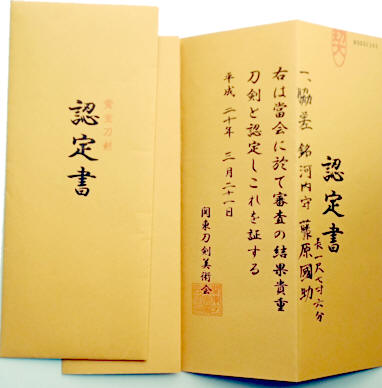 貴重刀剣
認定書
認定書
一、脇差 銘 河内守 藤原國助
長一尺七寸六分
右は當会に於て審査の結果貴重
刀剣と認定しこれを証する
平成二十年 三月二十一日
関東刀剣美術会